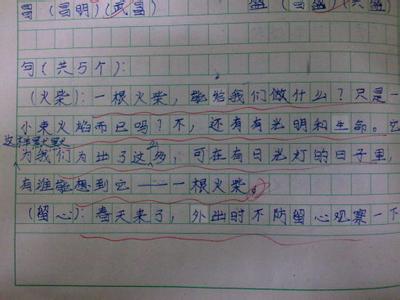 (昌明)(武昌)
句(共5个):
(火柴):一根火柴,能给我们做什么?只是一
小束火焰而已吗?不,还有有光明和生命。它
这样默默
为我们付出了这么多,可在有日光灯的日子里,
有谁能想到它——一根火柴。
(留心):春天来了,外出时不防留心观察一下